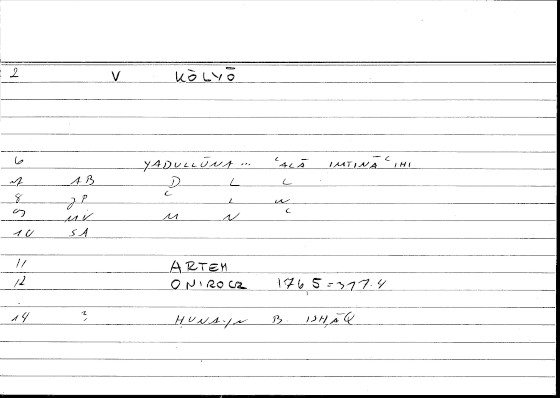 2 V KŌLYŌ
6 YADULLŪNA... ʿALĀ IMTINĀʿIHI
7 AB D L L
8 GP ʿ L W
9 MV M N ʿ
10 SA
11 ARTEM
12 ONIROCR 176,5=317.4
14 ? HUNAYN B. ISḤĀQ